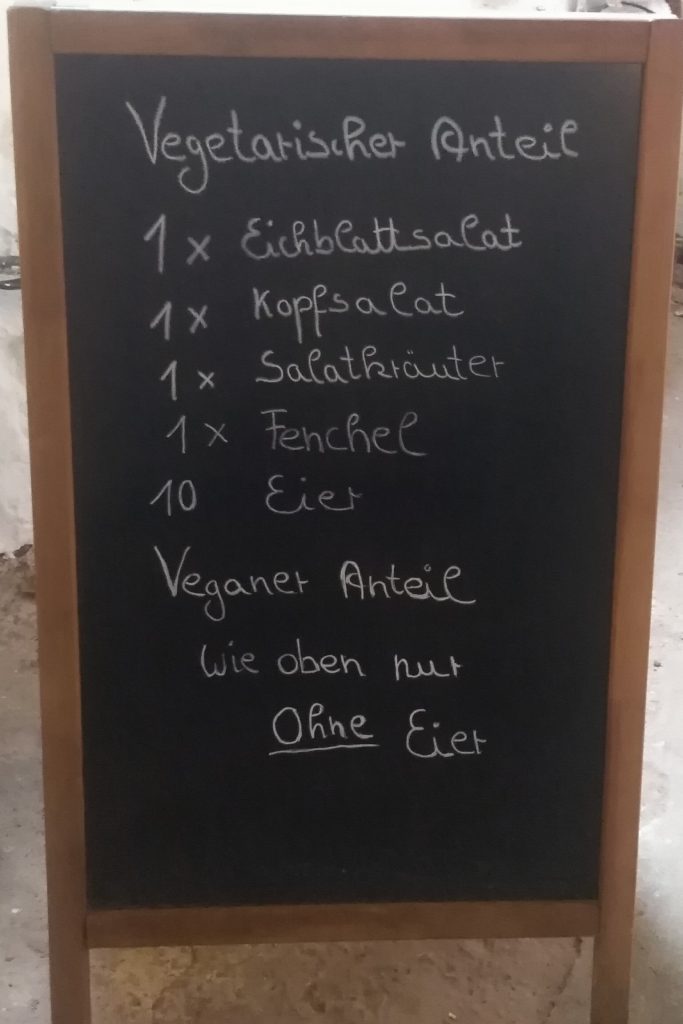 Vegetarischer Anteil
1 x Eichblattsalat
1 x Kopfsalat
1 x Salatkräuter
1 x Fenchel
10 Eier
Veganer Anteil
Wie oben nur
Ohne Eier